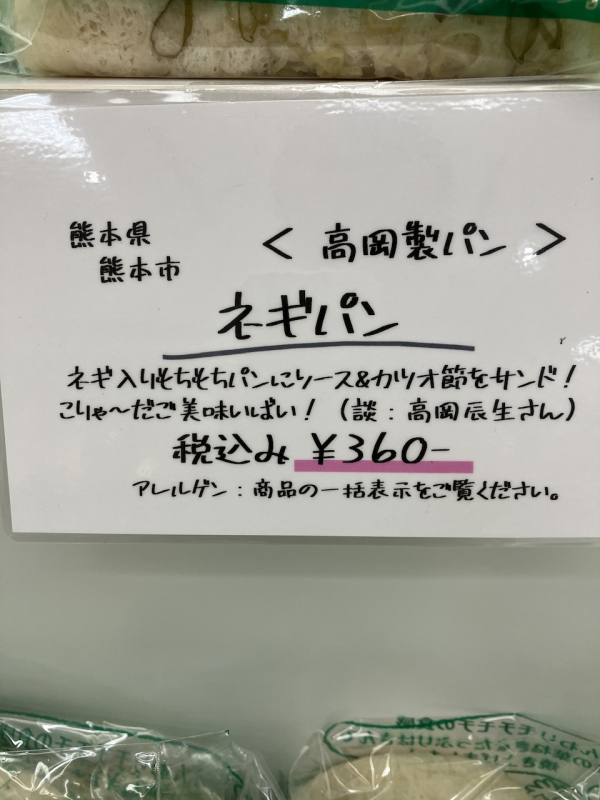 熊本県
熊本市
< 高岡製パン >
ネギパン
ネギ入りもちもちパンにソース&カツオ節をサンド!
こりゃ〜だご美味いばい!(談:高岡辰生さん)
税込み ¥360-
アレルゲン:商品の一括表示をご覧ください。